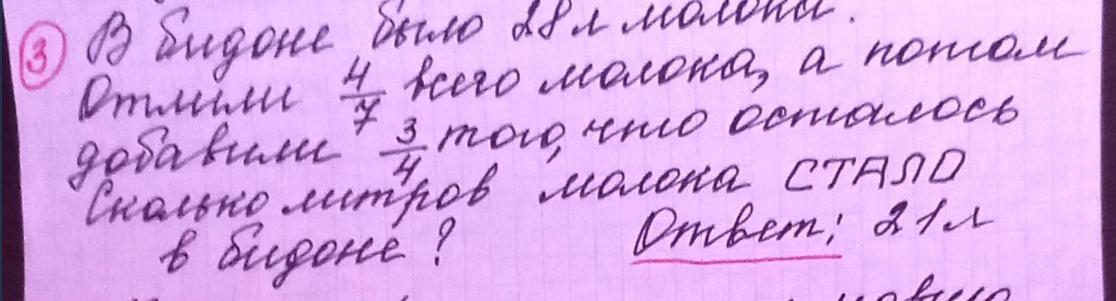 3 В бидоне было 28 л молока.
Отлили 4/7 всего молока, а потом
добавили 3/4 того, что осталось
Сколько литров молока СТАЛО
в бидоне? Ответ: 21 л